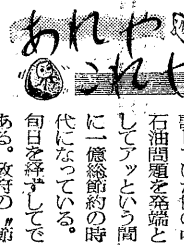 あれや
これや
石油問題を発端と
してアッという間
に一億総節約の時
代になっている。
旬日を経ずしてで
ある。政府の〝節